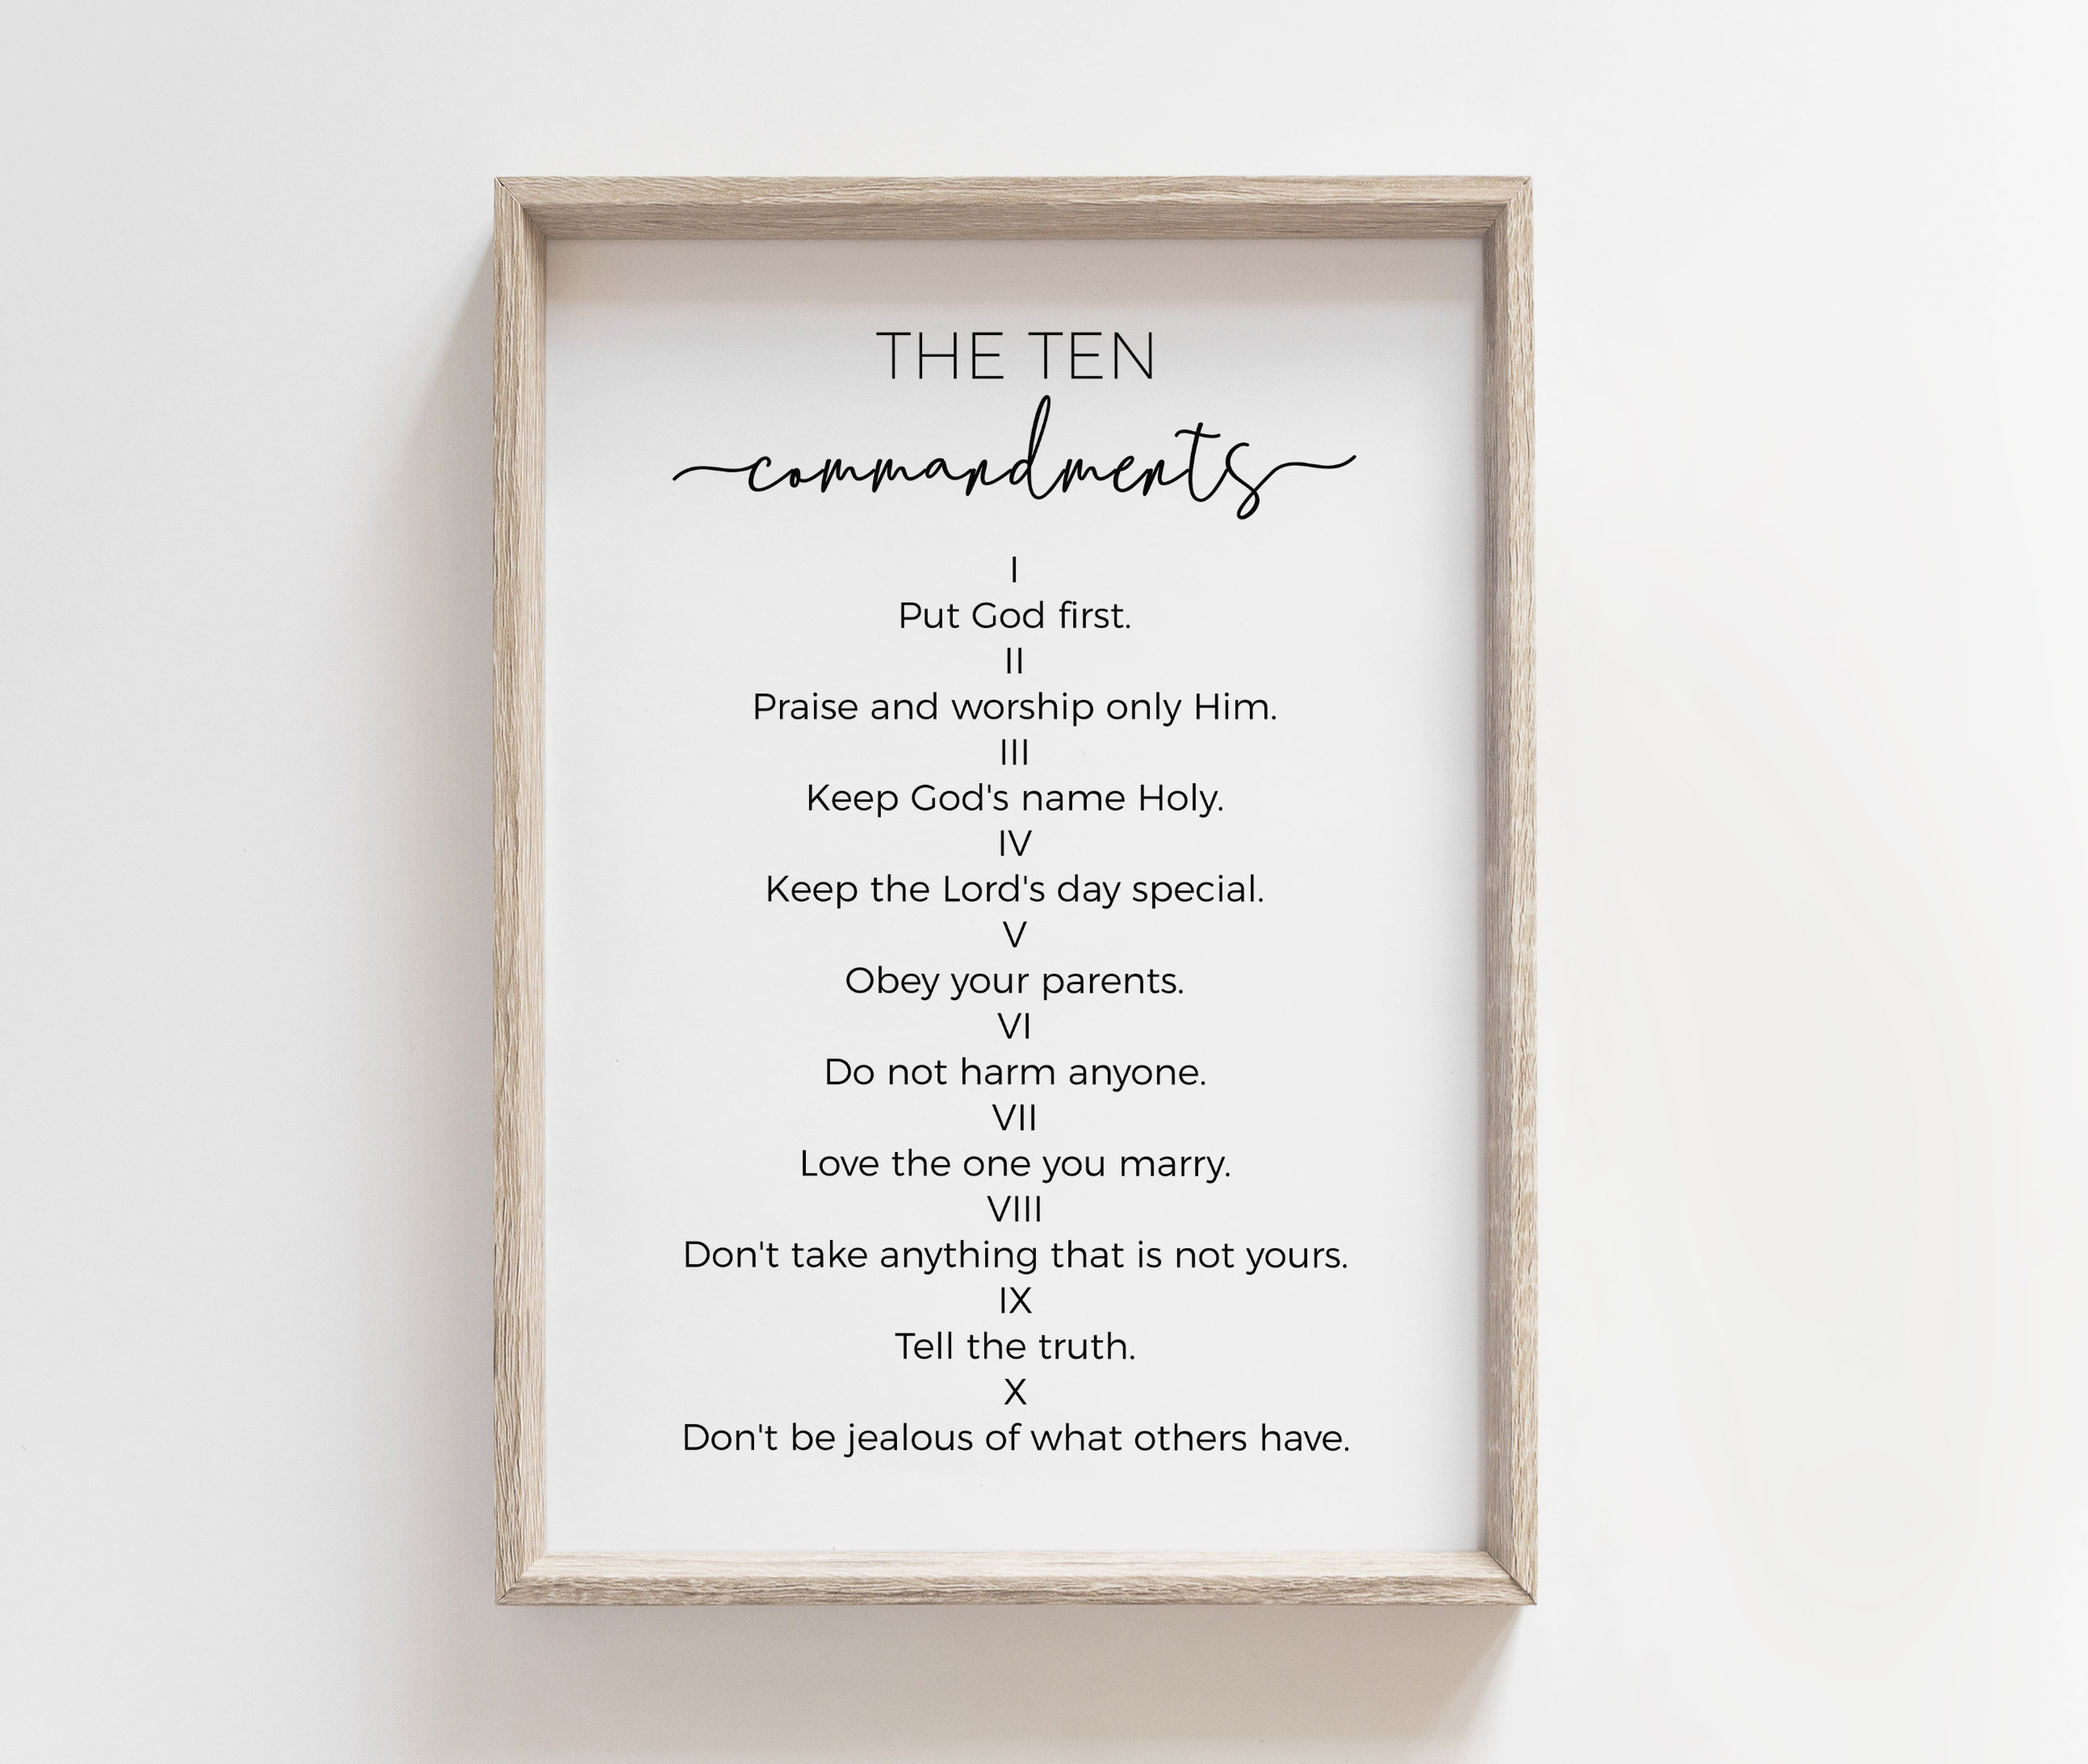 THE TEN
commandments
I
Put God first.
II
Praise and worship only Him.
III
Keep God's name Holy.
IV
Keep the Lord's day special.
V
Obey your parents.
VI
Do not harm anyone.
VII
Love the one you marry.
VIII
Don't take anything that is not yours.
IX
Tell the truth.
X
Don't be jealous of what others have.